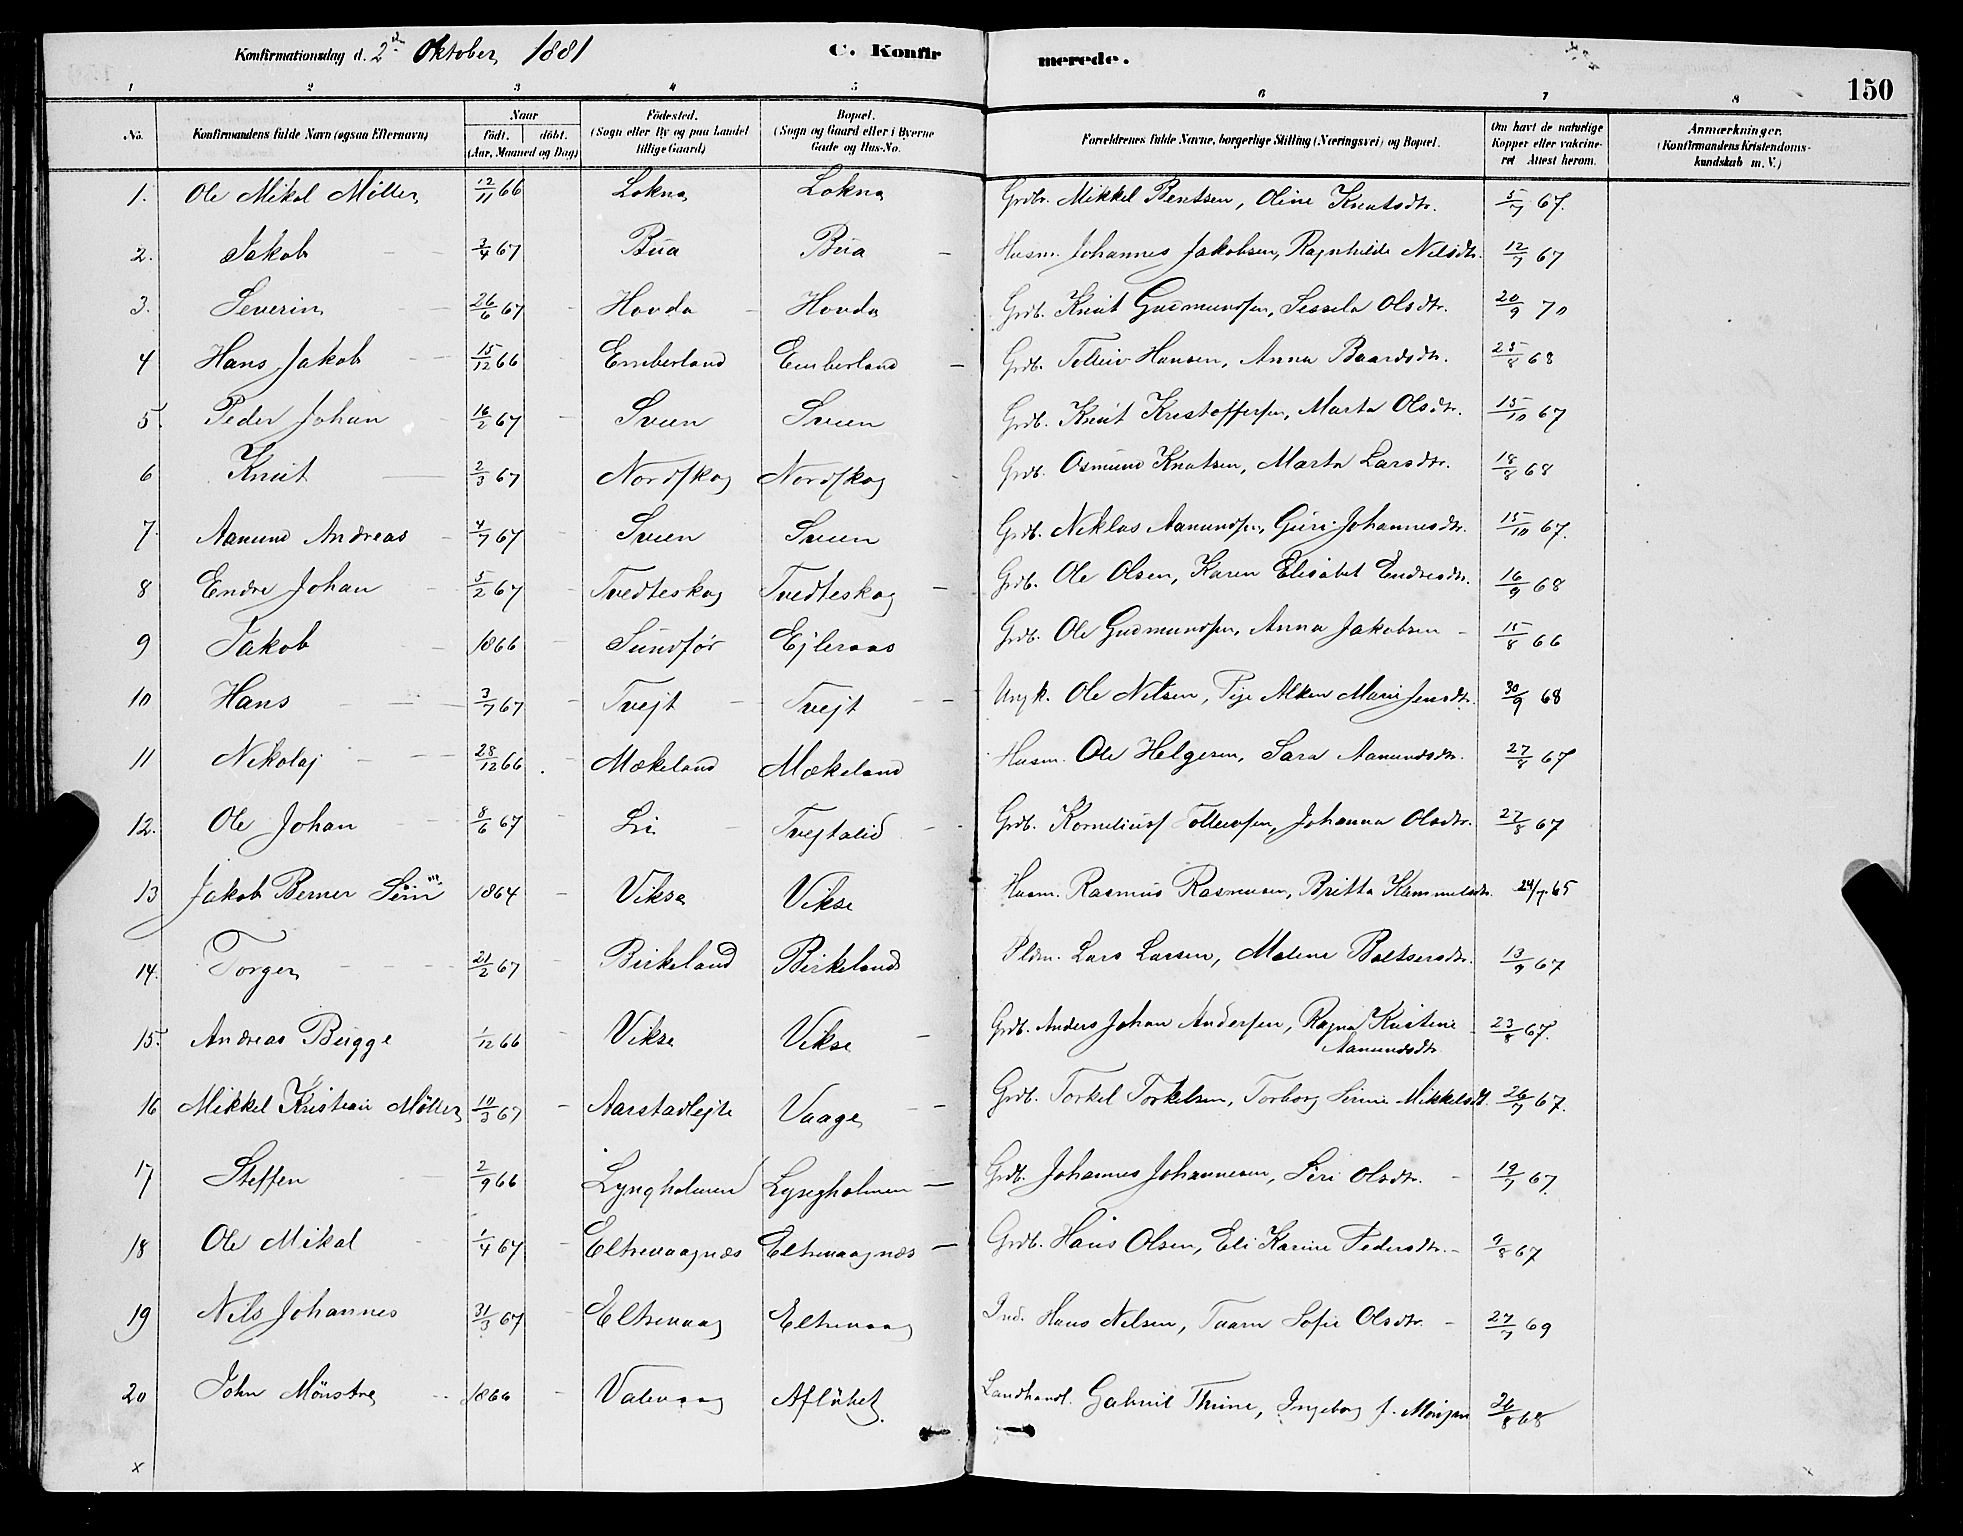 Konfirmationsdag d. 2den Oktober 1881 C. Konfirmerede. 150
1 2 3 4 5 6 7 8
No. Konfirmandens fulde Navn (ogsaa Efternavn) Naar født. døbt. (Aar, Maaned og Dag) Fødested. (Sogn eller By og paa Landet tillige Gaard) Bopæl. (Sogn og Gaard eller i Byerne Gade og Hus-No. Forældrenes fulde Navne, borgerlige Stilling (Næringsvei) og Bopæl. Om havt de naturlige Kopper eller vakcineret Attest herom. Anmærkninger. (Konfirmandens Kristendomskundskab m. V.)
1. Ole Mikal Möller 12/11 66 Lokna Lokna Grdbr. Mikkel Bentsen, Oline Knutsdtr. 5/7 67.
2. Jakob 3/4 67 Bua Bua Husm. Johannes Jakobsen, Ragnhilde Nilsdtr. 12/7 67
3. Severin 26/6 67 Hovda Hovda Grdb. Knut Gudmundsen, Sessela Olsdtr. 20/9 70
4 Hans Jakob 15/12 66 Emberland Emberland Grdb. Tolleiv Hansen, Anna Baardsdtr. 25/8 68
5. Peder Johan 16/2 67 Sveen Sveen Grdb. Knut Kristoffersen, Marta Olsdtr. 15/10 67
6 Knut 2/3 67 Nordskog Nordskog Grdb. Osmund Knutsen, Marta Larsdtr. 18/8 68
7. Aanund Andreas 4/7 67 Sveen Sveen Grdb. Niklas Aanundsen, Guri Johannesdtr. 15/10 67.
8 Endre Johan 5/2 67 Tvedteskog Tvedteskog Grdb. Ole Olsen, Karen Elisabet Endresdtr. 16/9 68
9 Jakob 1866 Sundfør Ejleraas Grdb. Ole Gudmundsen, Anna Jakobsen 15/8 66
10 Hans 3/7 67 Tvejt Tvejt Ungk. Ole Nilsen, Pige Alken Marie Jensdtr. 30/9 68
11 Nikolaj 28/12 66 Mækeland Mækeland Husm. Ole Helgesen, Sara Aanundsdtr. 27/8 67
12. Ole Johan 8/6 67 Li Tvejtalid Grdb. Kornelius Tollevsen, Johanna Olsdtr. 27/8 67
13 Jakob Berner 1864 Vikse Vikse Husm. Rasmus Rasmusen, Britta 24/7 65
14. Torger 21/2 67 Birkeland Birkeland Pldm. Lars Larsen, Malene Baltsersdtr. 13/9 67
15. Andreas Bugge 1/12 66 Vikse Vikse Grdb. Anders Johan Andersen, Ragna Kristine Aanundsdtr. 23/8 67.
16 Mikkel Kristian Möller 10/3 67 Aarstadlejte Vaage Grdb. Torkel Torkelsen, Torborg Serine Mikkelsdt. 26/7 67.
17 Steffen 2/9 66 Lyngholmen Lyngholmen Grdb. Johannes Johannesen, Siri Olsdtr. 19/7 67.
18 Ole Mikal 1/4 67 Eltrevaagnæs Eltrevaagnæs Grdb. Hans Olsen, Eli Karine Pedersdtr. 9/8 67
19 Nils Johannes 31/3 67 Eltrevaag Eltrevaag Ind. Hans Nilsen, Sofie Olsdtr. 27/7 69
20 John Mönstre 1866 Valevaag Afløbet Landhandl. Gabriel Ingeborg f. 26/8 68
x